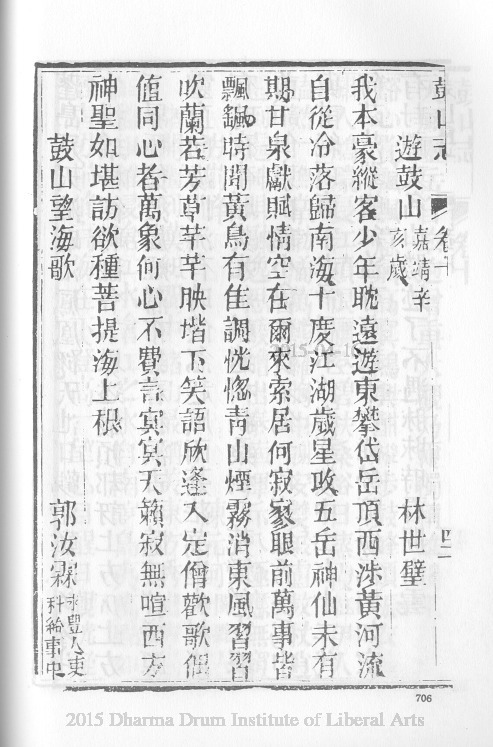 鼓山志 卷十 四二
遊鼓山 嘉靖辛亥歲 林世璧
我本豪縱客少年耽遠遊東攀岱岳頂西涉黃河流
自從冷落歸南海十度江湖歲星改五岳神仙未有
期甘泉獻賦情空在爾來索居何寂寥眼前萬事皆
飄颻時聞黃鳥有佳調恍惚靑山煙霧消東風習習
吹蘭若芳草芊芊映堦下笑語欣逢入定僧歡歌偶
値同心者萬象何心不費言冥冥天籟寂無喧西方
神聖如堪訪欲種菩提海上根
鼓山望海歌 郭汝霖 永豐人吏科給事中
706
2015 Dharma Drum Institute of Liberal Arts